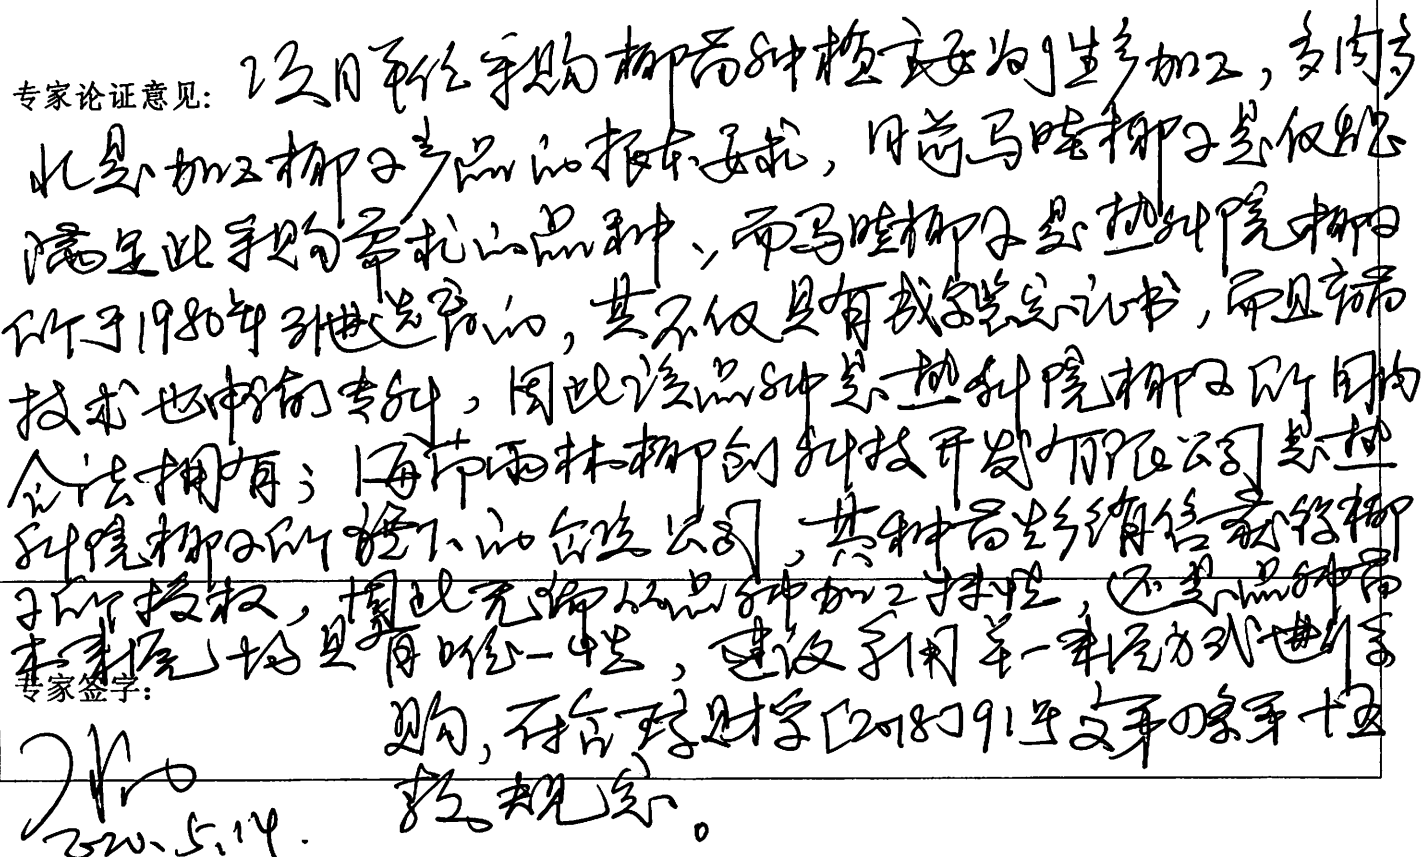 专家论证意见：项目单位采购椰苗种植主要为了生产加工，多肉多
水是加工椰子产品的根本要求，目前马哇椰子是仅能
满足此采购需求的品种，而马哇椰子是热科院椰子
所于1980年引进选育的，其不仅具有成学鉴定证书，而且育苗
技术也申请专利，因此该品种是热科院椰子所目内
合法拥有；海南雨林椰创科技开发有限公司是热
科院椰子所旗下的公司，其种苗生产销售获得椰
子所授权，因此无论从品种加工特性，还是品种苗
木来源上均具有唯一性，建议采用单一来源方式进行采
专家签字：
购，符合琼财字[2018]91号文第四条第十五
款规定。
2020.5.14.